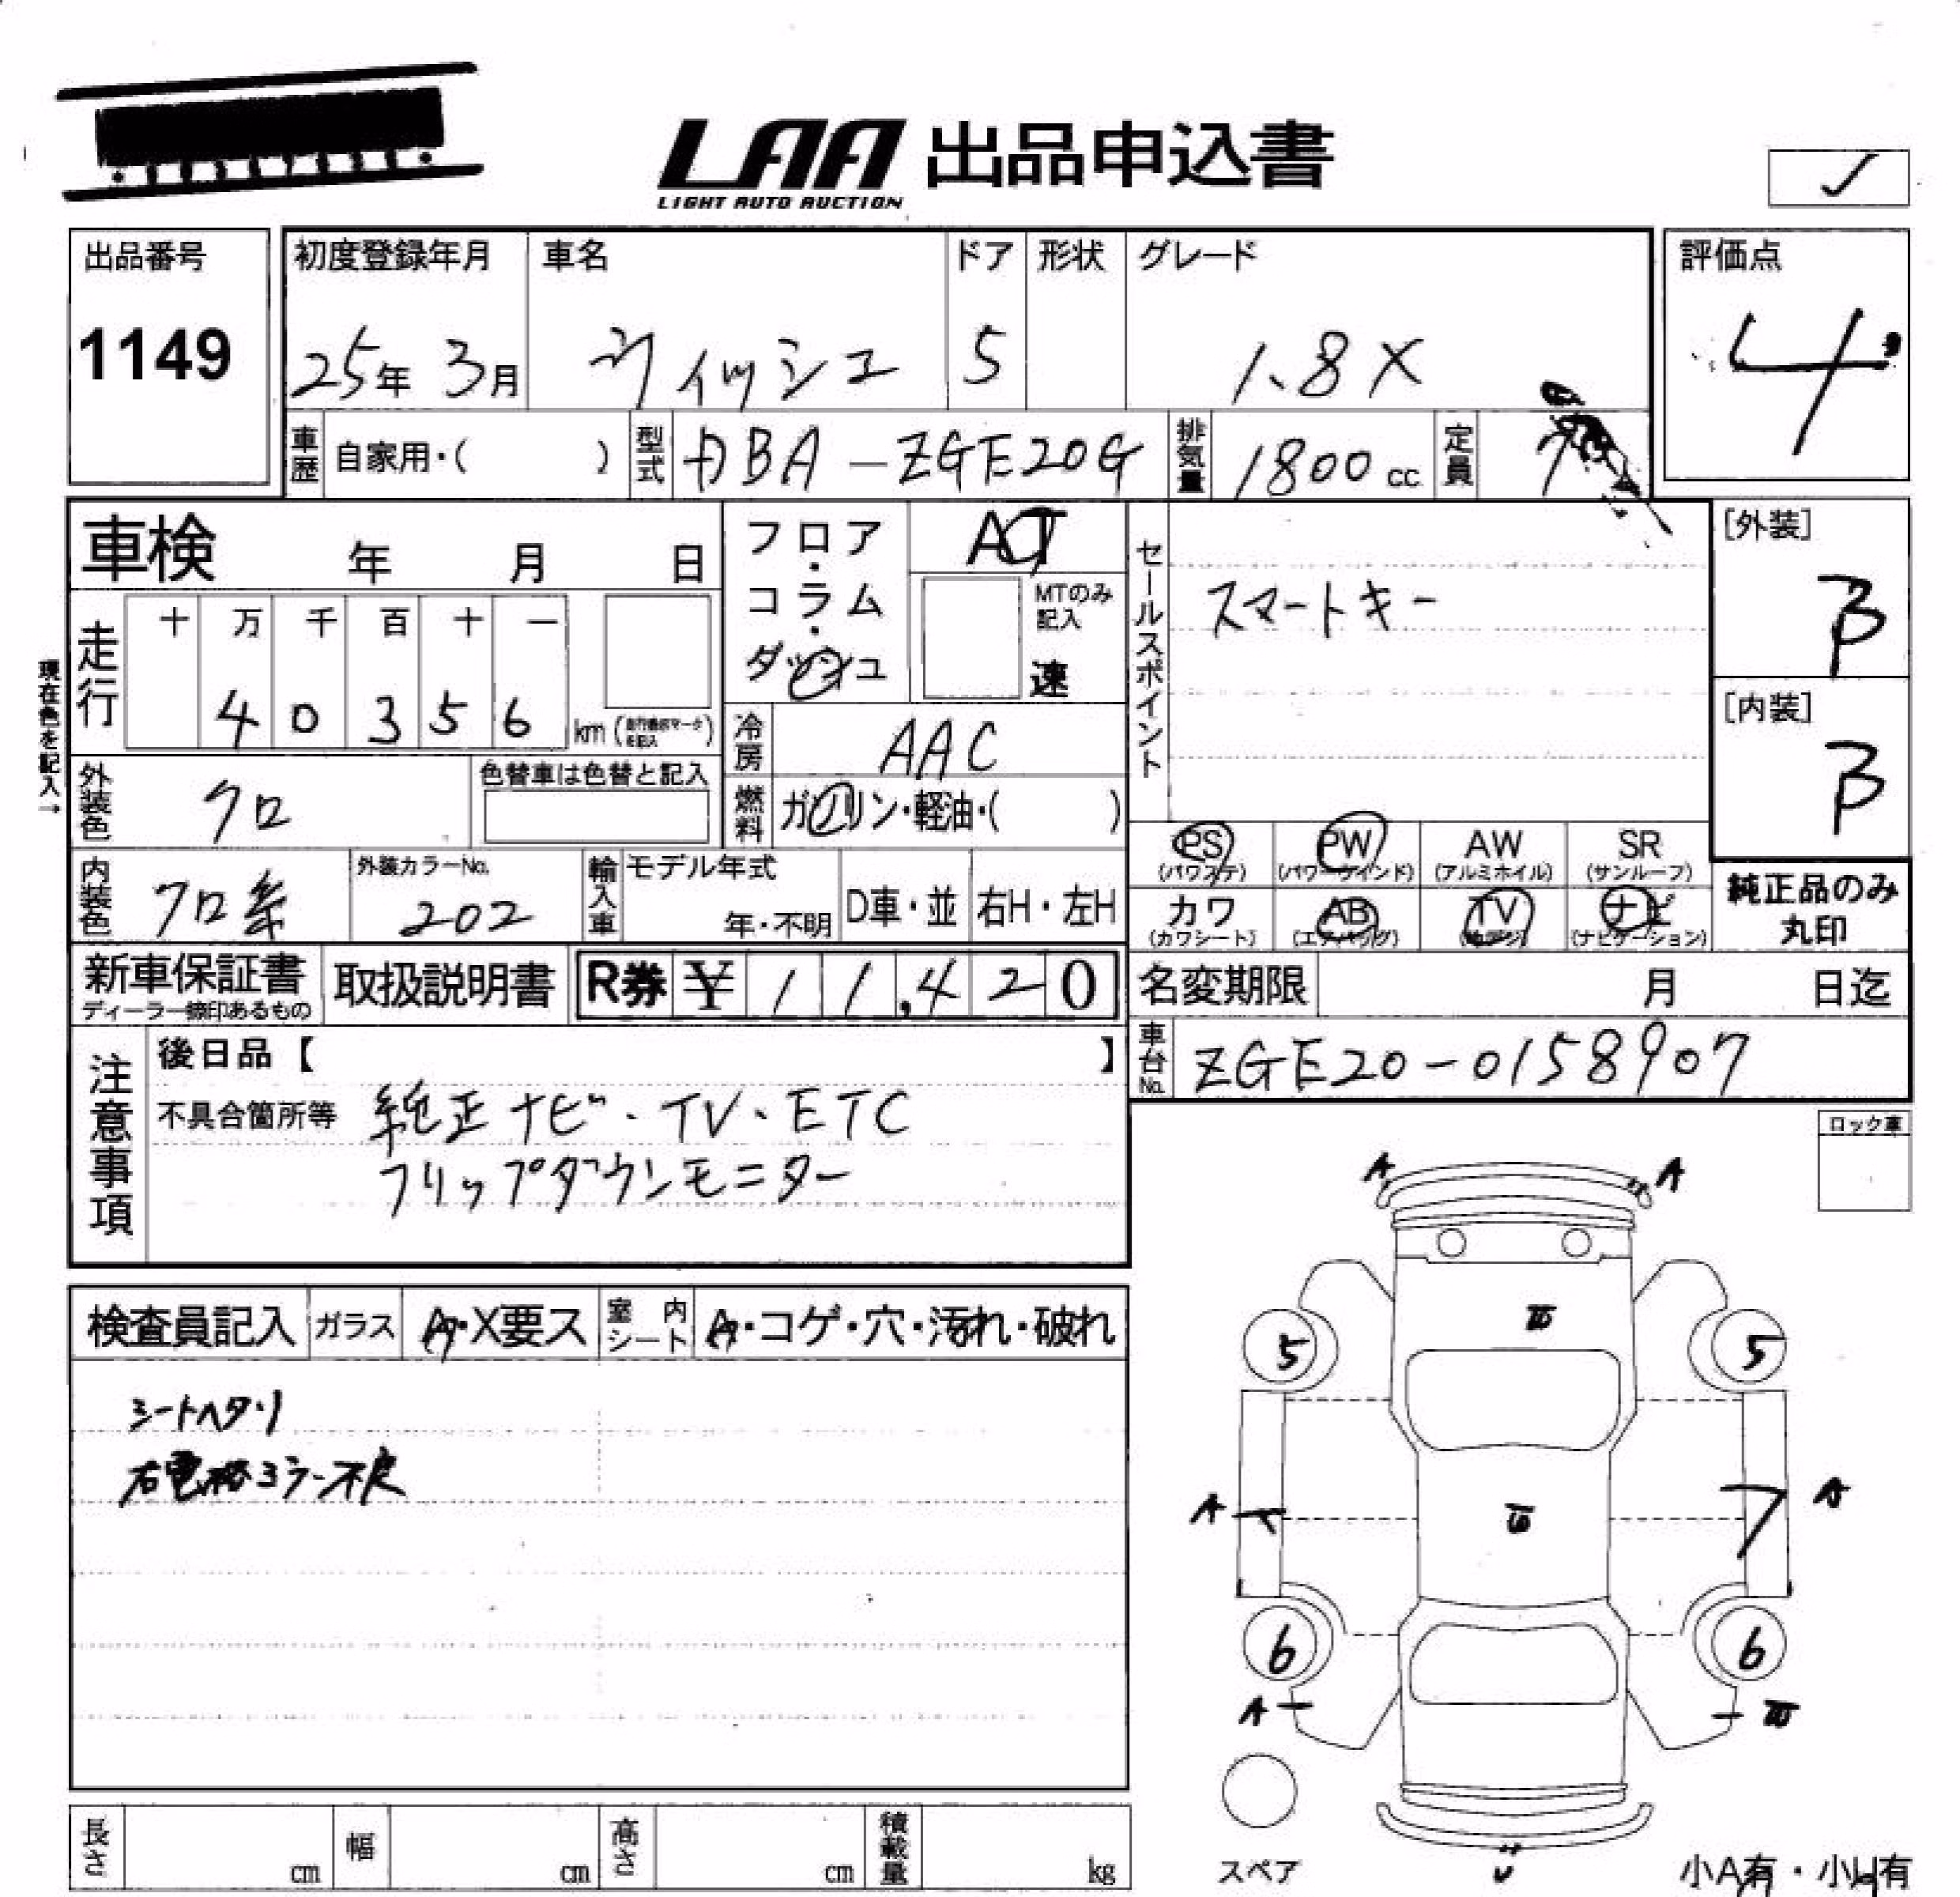 LAA 出品申込書
LIGHT AUTO AUCTION
出品番号 初度登録年月 車名 ドア 形状 グレード 評価点
1149 25年 3月 ヴィッシュ 5 1.8X 4
車歴 自家用・( ) 型式 DBA-ZGE20G 排気量 1800cc 定員 7
車検 年 月 日
フロア・コラム・ダッシュ
AT
MTのみ記入
速
セールスポイント
スマートキー
[外装]
B
[内装]
B
現在色を記入→
走行 十 万 千 百 十 一
4 0 3 5 6 km
冷房 AAC
外装色 クロ 色替車は色替と記入
燃料 ガソリン・軽油・( )
PS PW AW SR
(パワステ) (パワーウインド) (アルミホイル) (サンルーフ)
内装色 クロ系 外装カラーNo. 202 輸入車 モデル年式 年・不明 D車・並 右H・左H
カワ AB TV ナビ
(カワシート) (エアバッグ) (ナビゲーション)
純正品のみ
丸印
新車保証書 取扱説明書 R券 ¥ 1 1,4 2 0
ディーラー捺印あるもの
名変期限 月 日迄
車台No. ZGE20-0158907
注意事項
後日品【 】
不具合箇所等 純正ナビ・TV・ETC
フリップダウンモニター
ロック車
A A
検査員記入 ガラス A・X要ス 室内シート A・コゲ・穴・汚れ・破れ
シートヘタリ
右電格ミラー不良
5 5
A A
6 6
A
スペア
長さ cm 幅 cm 高さ cm 積載量 kg
小A有・小U有